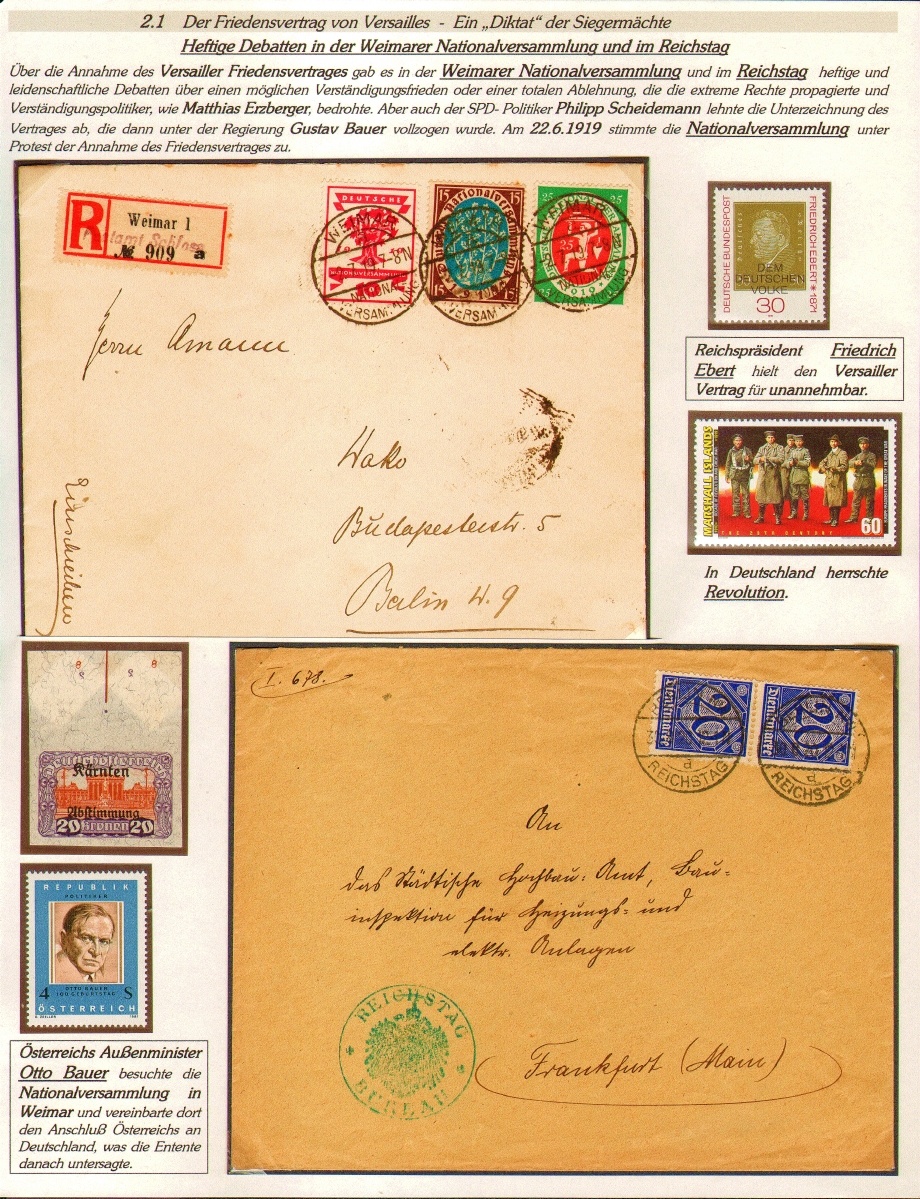 2.1 Der Friedensvertrag von Versailles - Ein „Diktat" der Siegermächte
Heftige Debatten in der Weimarer Nationalversammlung und im Reichstag
Über die Annahme des Versailler Friedensvertrages gab es in der Weimarer Nationalversammlung und im Reichstag heftige und
leidenschaftliche Debatten über einen möglichen Verständigungsfrieden oder einer totalen Ablehnung, die die extreme Rechte propagierte und
Verständigungspolitiker, wie Matthias Erzberger, bedrohte. Aber auch der SPD- Politiker Philipp Scheidemann lehnte die Unterzeichnung des
Vertrages ab, die dann unter der Regierung Gustav Bauer vollzogen wurde. Am 22.6.1919 stimmte die Nationalversammlung unter
Protest der Annahme des Friedensvertrages zu.
R
Weimar 1
№ 909 a
DEUTSCHE
NATIONALVERSAMMLUNG
10
WEIMAR
NATIONAL
VERSAMMLUNG
15 15
15 15
25 25
Herrn Amann
Wako
Budapesterstr. 5
Berlin W. 9
Einschreiben
DEUTSCHE BUNDESPOST
FRIEDRICH EBERT * 1871
DEM
DEUTSCHEN
VOLKE
30
Reichspräsident Friedrich
Ebert hielt den Versailler
Vertrag für unannehmbar.
MARSHALL ISLANDS
60
THE 20TH CENTURY
In Deutschland herrschte
Revolution.
8 8
8 8
Deutschösterreich
Kärnten
Abstimmung
20 Kronen 20
REPUBLIK
POLITIKER
OTTO BAUER
100. GEBURTSTAG
4 S
ÖSTERREICH
1981
Österreichs Außenminister
Otto Bauer besuchte die
Nationalversammlung in
Weimar und vereinbarte dort
den Anschluß Österreichs an
Deutschland, was die Entente
danach untersagte.
I. 678.
Dienstmarke 20
Dienstmarke 20
d
REICHSTAG
d
REICHSTAG
An
das Städtische Hochbau-Amt, Bau-
inspektion für Heizungs- und
elektr. Anlagen
Frankfurt (Main)
REICHSTAG